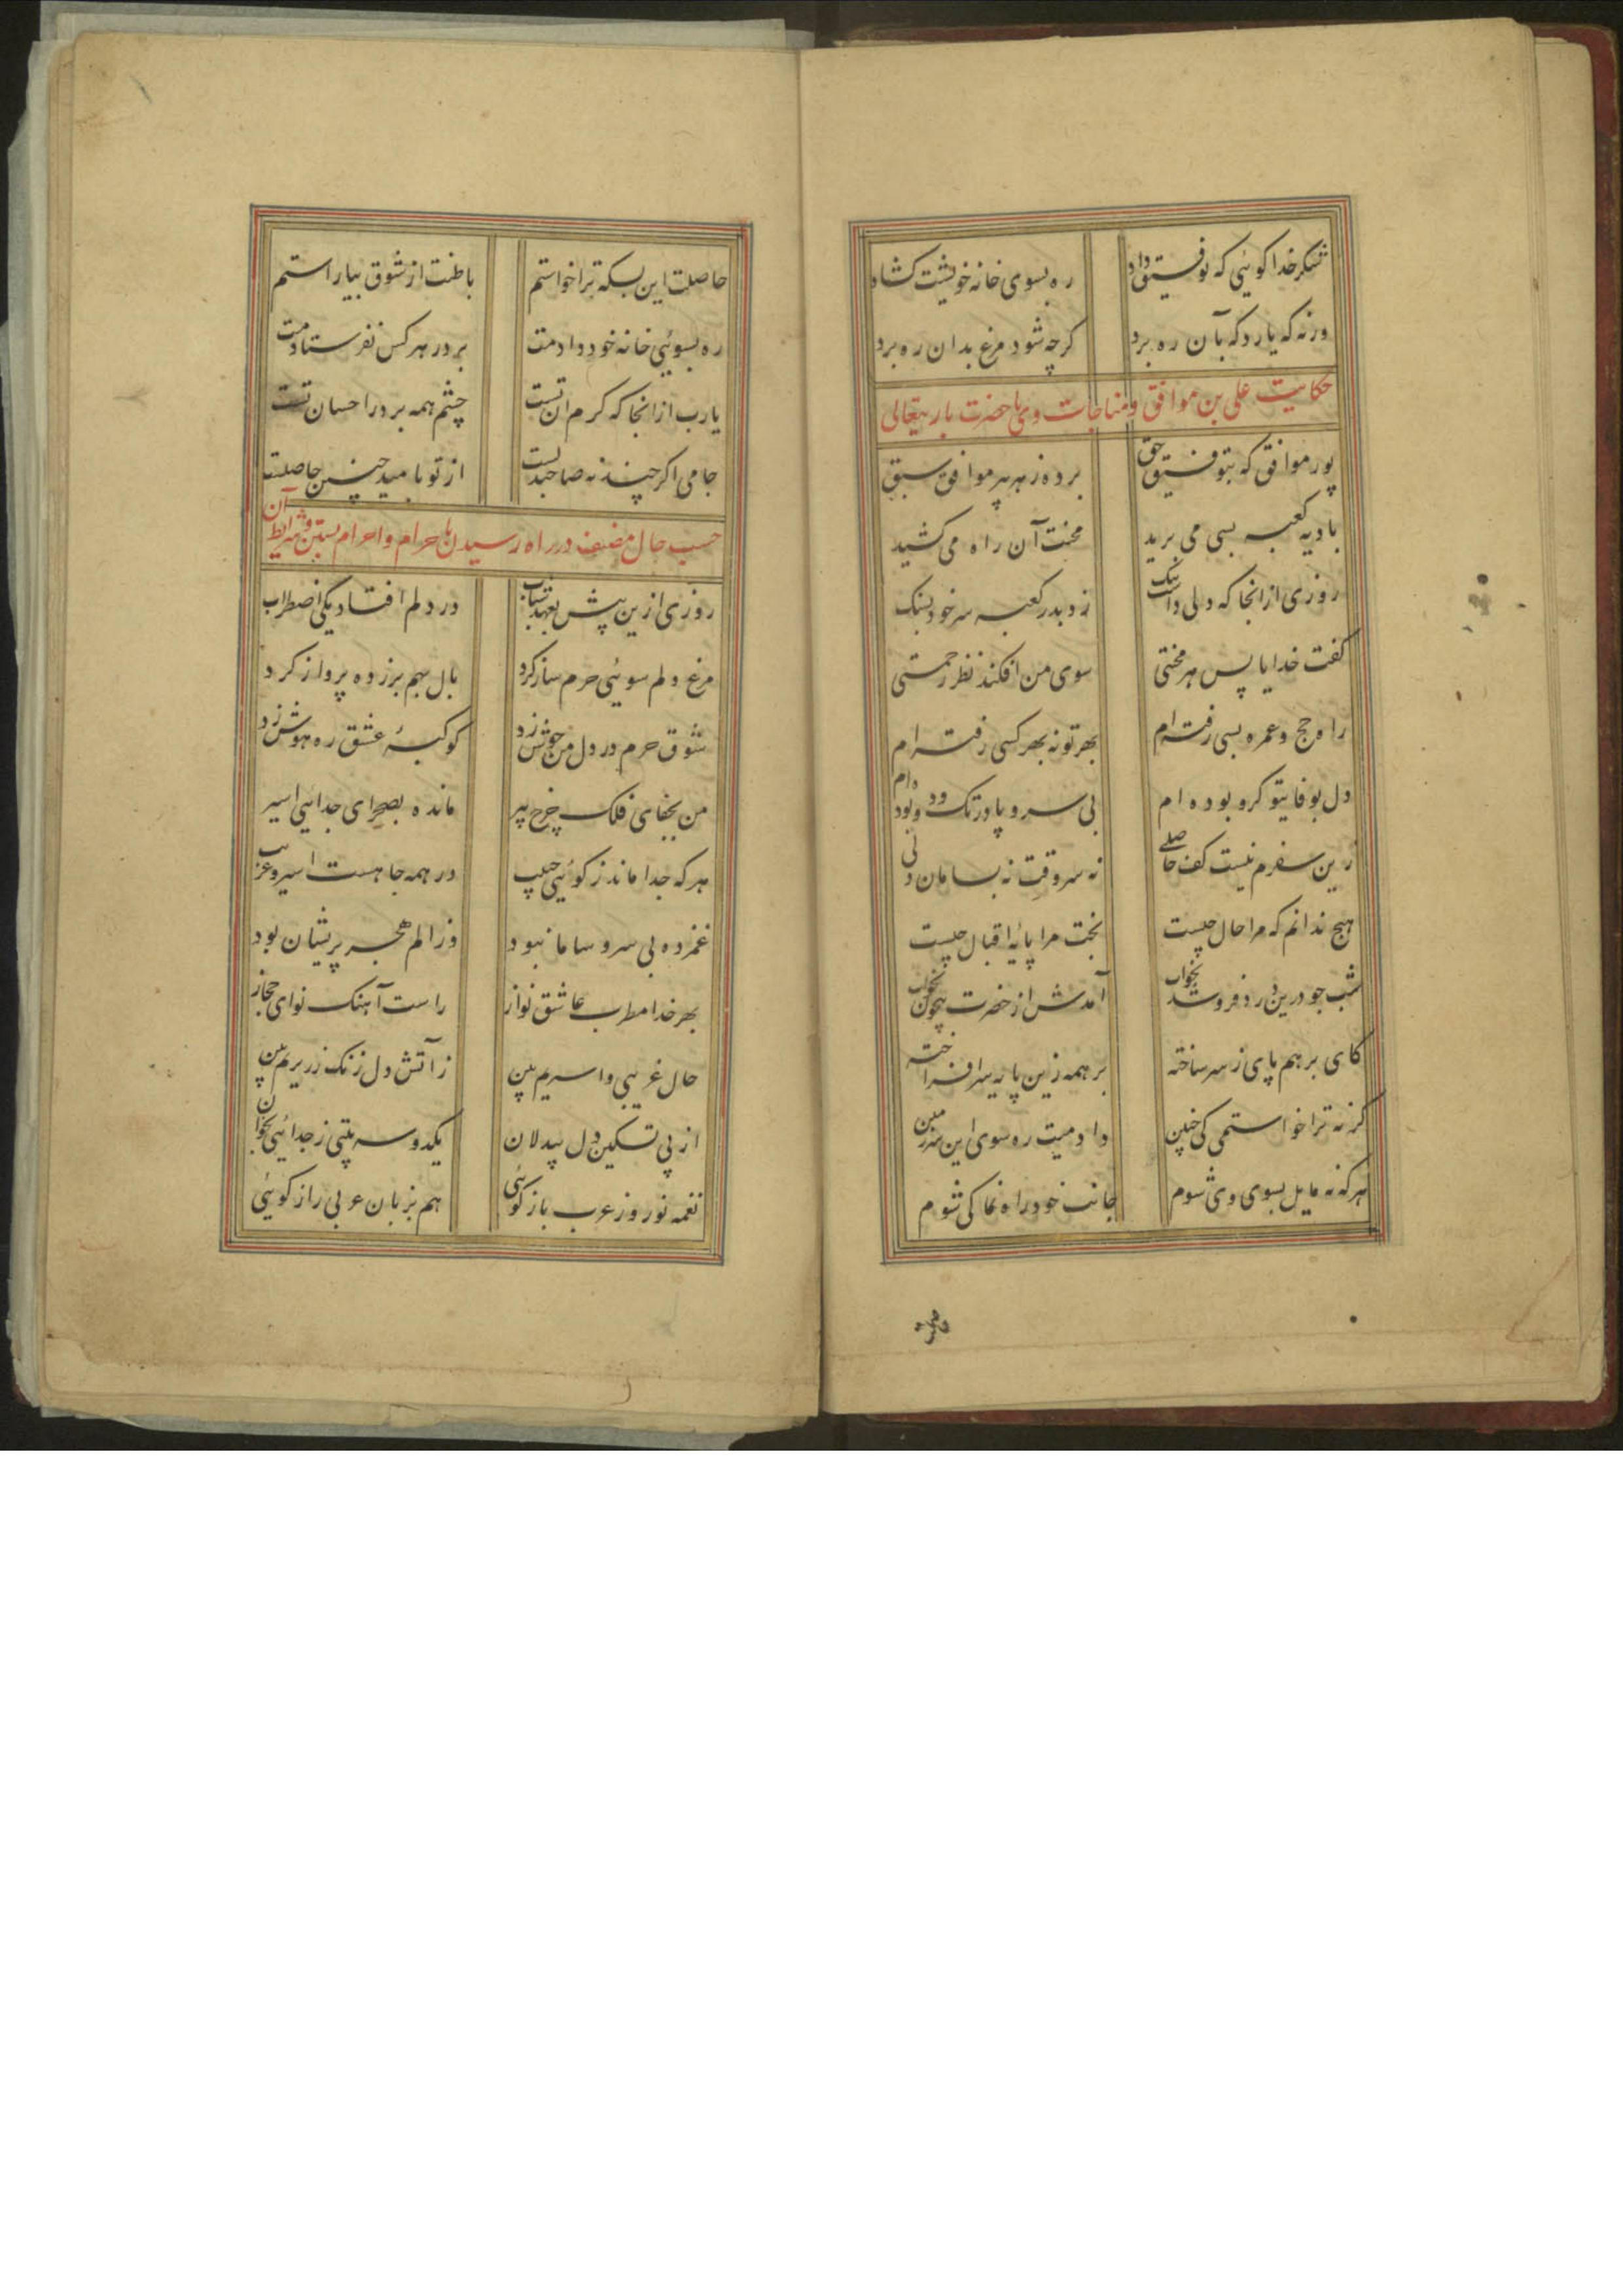 شکر خدا کوئی که توفیق داد ره بسوی خانه خویشت کشاد
ورنه که یارد که بآن ره برد کرچه شود مرغ بدان ره برد
حکایت علی بن موافق و مناجات وی با حضرت باریتعالی
پور موافق که بتوفیق حق برده ز هر پر موافق سبق
بادیه کعبه بسی می برید محنت آن راه می کشید
روزی ازانجا که دلی داشت تنک زد بدر کعبه سر خود بسنک
کفت خدایا پس هر محنتی سوی من افکند نظر رحمتی
راه حج و عمره بسی رفته ام بهر تو نه بهر کسی رفته ام
دل بوفا بتو کرو بوده ام بی سر و پا در تک و دو بوده ام
زین سفرم نیست کف حاصلی نه سر وقت نه بسامان دلی
هیچ ندانم که مرا حال چیست بخت مرا پائه اقبال چیست
شب چو درین درد فرو شد بخواب آمدش از حضرت بیچون
کای بر هم پای ز سر ساخته بر همه زین پایه سر افراخته
کر نه ترا خواستمی کی چنین دادمیت ره سوی این سرزمین
هرکه نه مایل بسوی وی شوم جانب خود راه نما کی شوم
حاصلت این بسکه ترا خواستم باطنت از شوق بیاراستم
ره بسوئی خانه خود دادمت بر در هر کس نفرستادمت
یارب ازانجا که کرم ان تست چشم همه بر در احسان تست
جامی اکر چند نه صاحبدلست از تو بامید چنین حاصلت
حسب حال مصنف در راه رسیدن باحرام و احرام بستن و شرایط آن
روزی ازین پیش بعهد شباب در دلم افتاد یکی اضطراب
مرغ دلم سوئی حرم ساز کرد بال بهم بر زده پرواز کرد
شوق حرم در دل من جوش زد کوکبهٔ عشق ره هوش زد
من بجفای فلک چرخ پیر مانده بصحرای جدایی اسیر
هرکه جدا ماند ز کوئی حبیب در همه جا هست اسیر و غریب
غمزده بی سر و سامان بود وز الم هجر پریشان بود
بهر خدا مطرب عاشق نواز راست آهنک نوای حجاز
حال غریبی و اسیریم بین ز آتش دل زنک زریریم بین
از پی تسکین دل بیدلان یکدو سه بیتی ز جدائی بخوان
نغمه نوروز عرب باز کوئی هم بزبان عربی راز کوئی